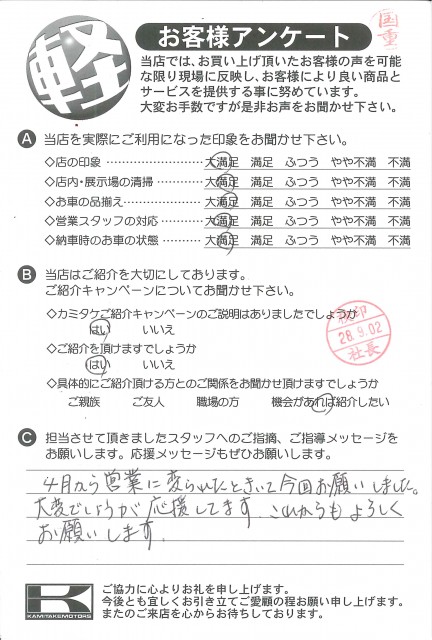 軽
お客様アンケート
国重
当店では、お買い上げ頂いたお客様の声を可能
な限り現場に反映し、お客様により良い商品と
サービスを提供する事に努めています。
大変お手数ですが是非お声をお聞かせ下さい。
A 当店を実際にご利用になった印象をお聞かせ下さい。
◇店の印象 ………………… 大満足 満足 ふつう やや不満 不満
◇店内・展示場の清掃 ………… 大満足 満足 ふつう やや不満 不満
◇お車の品揃え ……………… 大満足 満足 ふつう やや不満 不満
◇営業スタッフの対応 ………… 大満足 満足 ふつう やや不満 不満
◇納車時のお車の状態 ………… 大満足 満足 ふつう やや不満 不満
B 当店はご紹介を大切にしております。
ご紹介キャンペーンについてお聞かせ下さい。
◇カミタケご紹介キャンペーンのご説明はありましたでしょうか
はい いいえ
28.9.02
社長
◇ご紹介を頂けますでしょうか
はい いいえ
◇具体的にご紹介頂ける方とのご関係をお聞かせ頂けますでしょうか
ご親族 ご友人 職場の方 機会があれば紹介したい
C 担当させて頂きましたスタッフへのご指摘、ご指導メッセージを
お願いします。応援メッセージもぜひお願いします。
4月から営業に変られたときいて今回お願いしました。
大変でしょうが応援してます。これからもよろしく
お願いします。
K
KAMITAKEMOTORS
ご協力に心よりお礼を申し上げます。
今後とも宜しくお引き立てご愛顧の程お願い申し上げます。
またのご来店を心からお待ちしております。